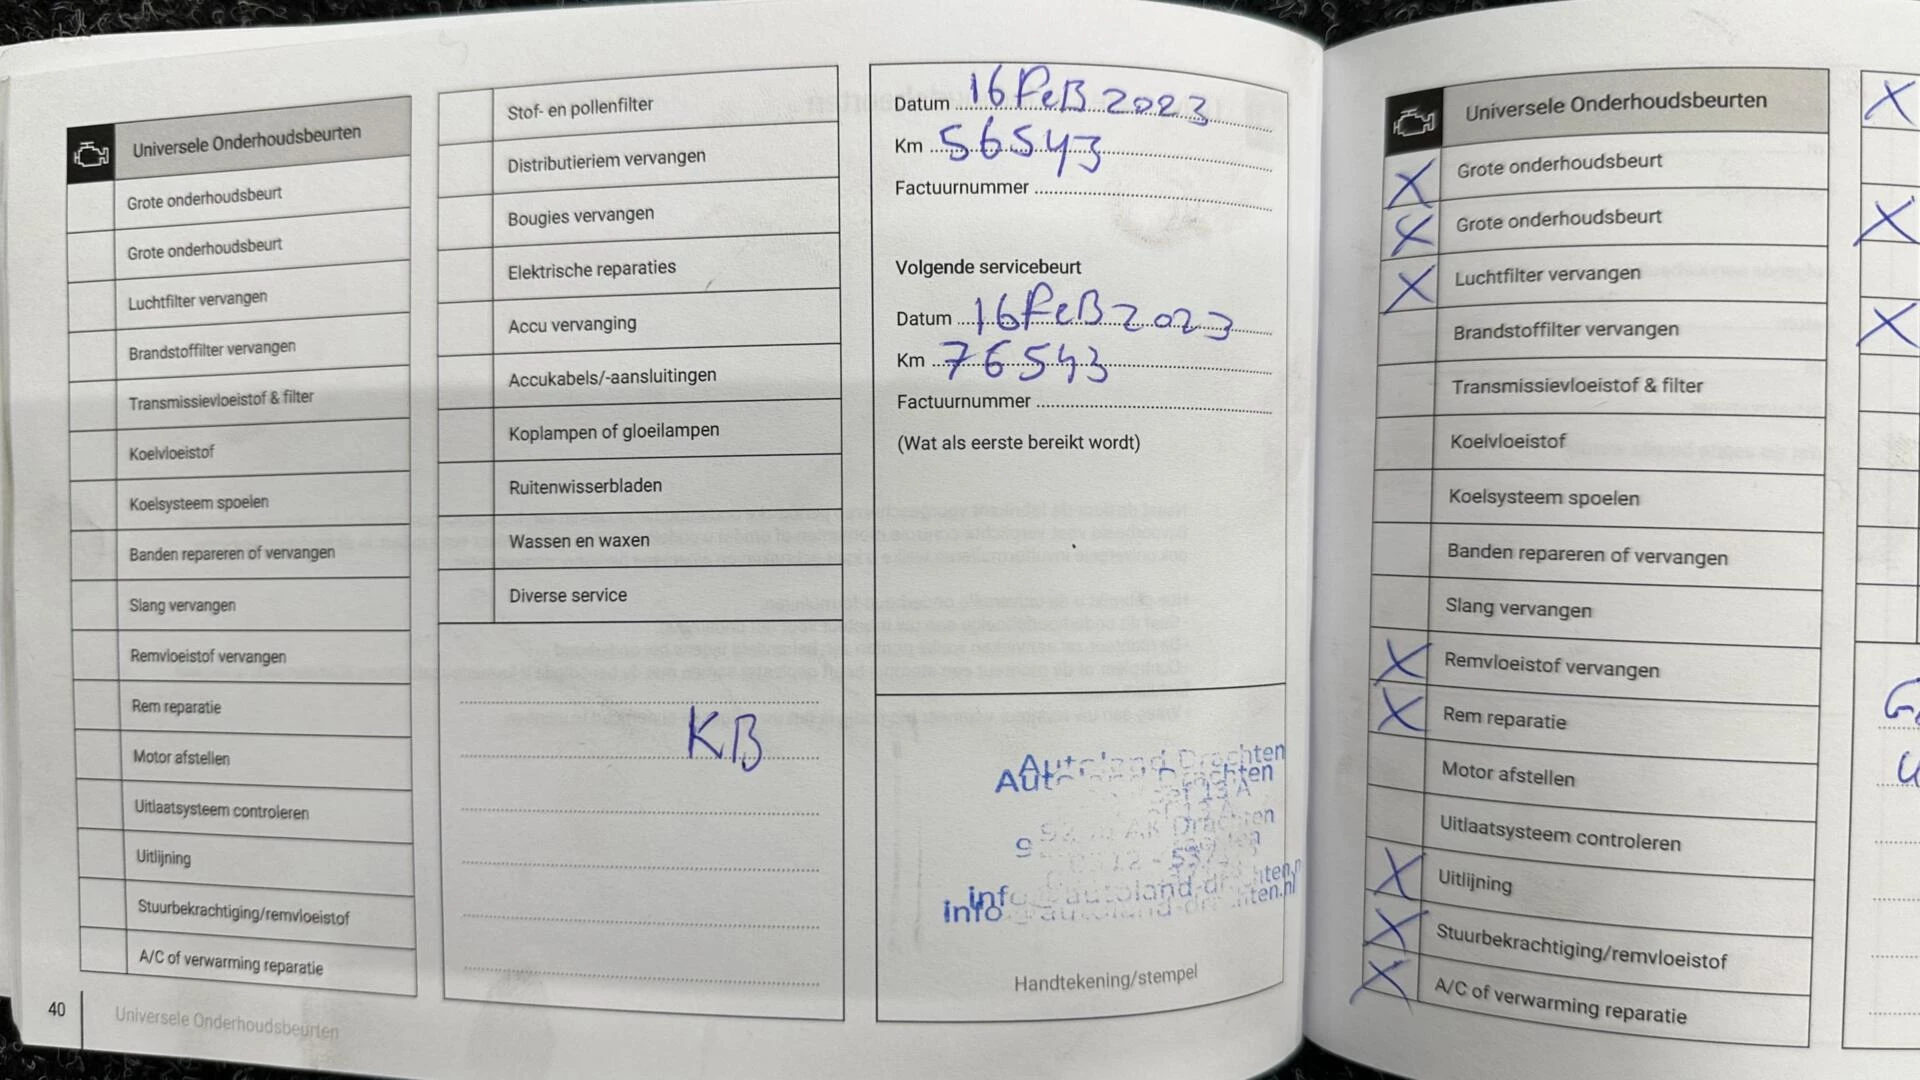 Universele Onderhoudsbeurten
Grote onderhoudsbeurt
Grote onderhoudsbeurt
Luchtfilter vervangen
Brandstoffilter vervangen
Transmissievloeistof & filter
Koelvloeistof
Koelsysteem spoelen
Banden repareren of vervangen
Slang vervangen
Remvloeistof vervangen
Rem reparatie
Motor afstellen
Uitlaatsysteem controleren
Uitlijning
Stuurbekrachtiging/remvloeistof
A/C of verwarming reparatie
40
Universele Onderhoudsbeurten
Stof- en pollenfilter
Distributieriem vervangen
Bougies vervangen
Elektrische reparaties
Accu vervanging
Accukabels/-aansluitingen
Koplampen of gloeilampen
Ruitenwisserbladen
Wassen en waxen
Diverse service
KB
Datum 16 FeB 2023
Km 56543
Factuurnummer
Volgende servicebeurt
Datum 16 FeB 2023
Km 76543
Factuurnummer
(Wat als eerste bereikt wordt)
Autoland Drachten
13 A
AK Drachten
info@autoland-drachten.nl
Handtekening/stempel
Universele Onderhoudsbeurten
X Grote onderhoudsbeurt
X Grote onderhoudsbeurt
X Luchtfilter vervangen
Brandstoffilter vervangen
Transmissievloeistof & filter
Koelvloeistof
Koelsysteem spoelen
Banden repareren of vervangen
Slang vervangen
X Remvloeistof vervangen
X Rem reparatie
Motor afstellen
Uitlaatsysteem controleren
X Uitlijning
X Stuurbekrachtiging/remvloeistof
X A/C of verwarming reparatie
X
X
X